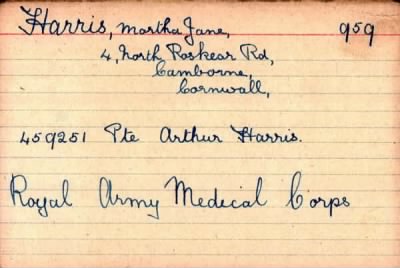 Harris, Martha Jane, 959
4, North Roskear Rd,
Camborne,
Cornwall,
459251 Pte Arthur Harris.
Royal Army Medical Corps